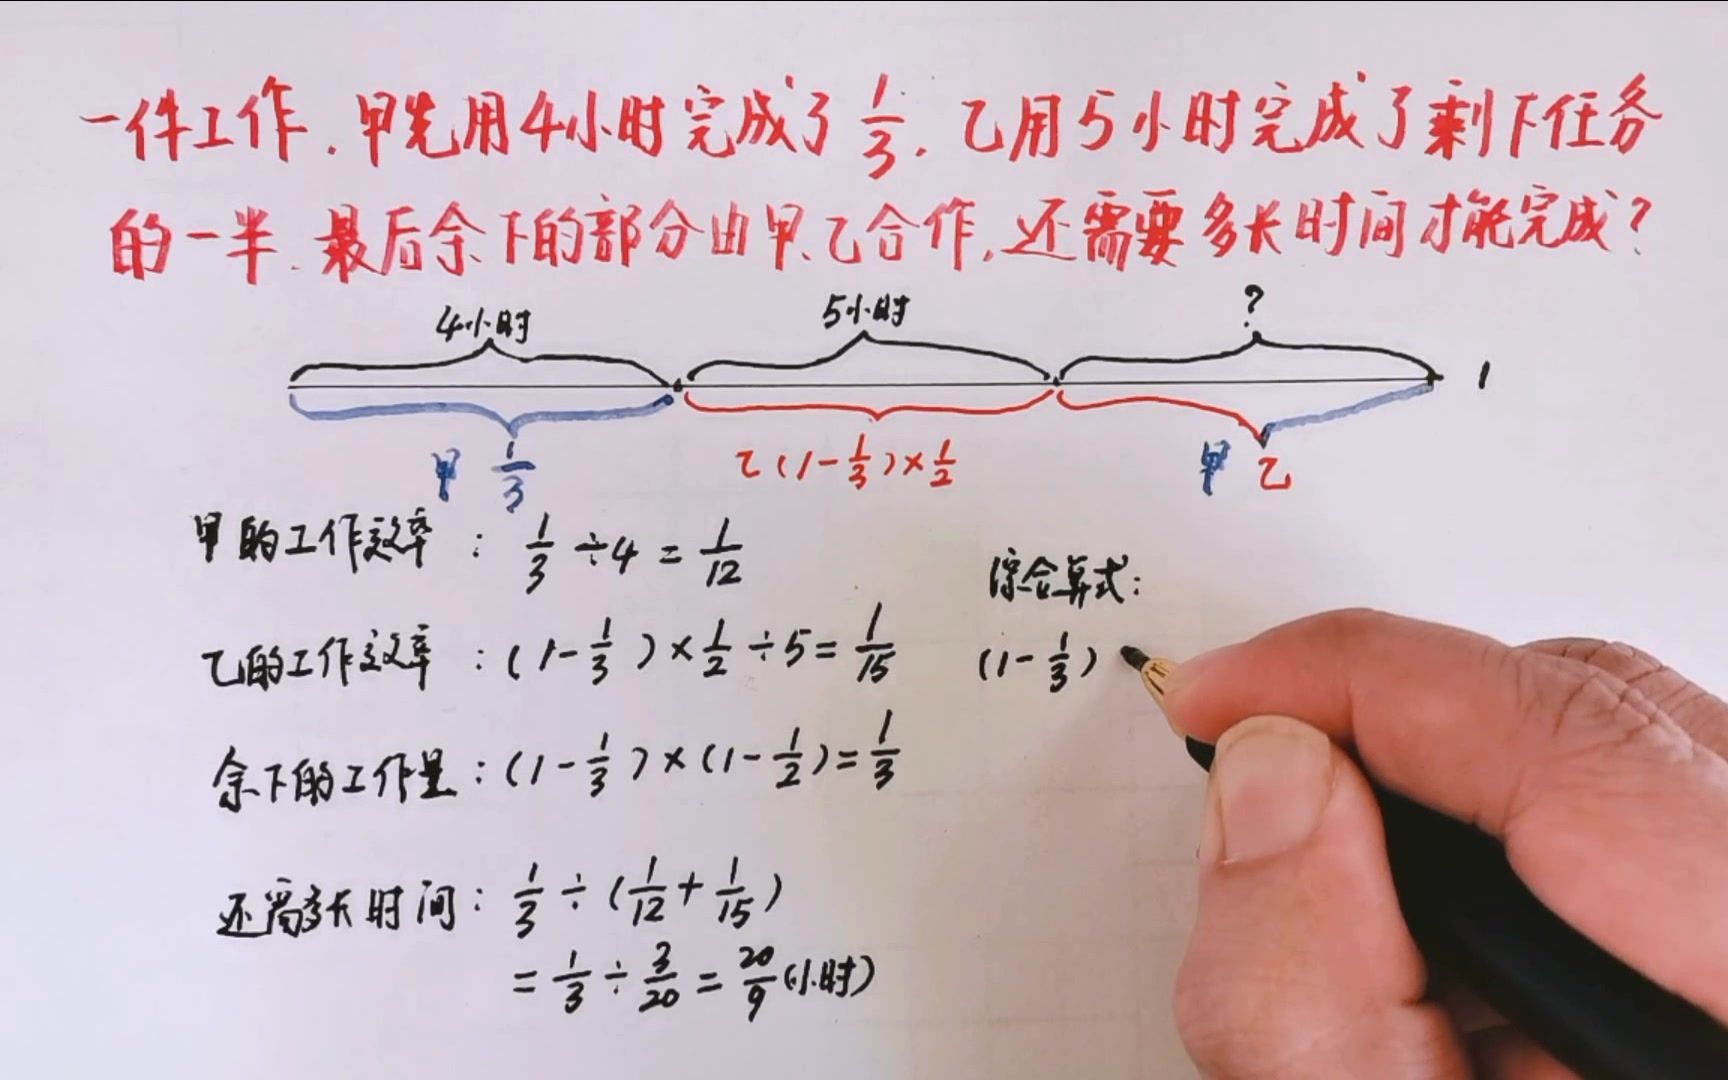 一件工作.甲先用4小时完成了1/3.乙用5小时完成了剩下任务
的一半.最后余下的部分由甲、乙合作,还需要多长时间才能完成?
4小时 5小时 ?
1
甲 1/3 乙(1-1/3)×1/2 甲 乙
甲的工作效率:1/3÷4=1/12
综合算式:
乙的工作效率:(1-1/3)×1/2÷5=1/15
(1-1/3)
余下的工作量:(1-1/3)×(1-1/2)=1/3
还需多长时间:1/3÷(1/12+1/15)
=1/3÷3/20=20/9(小时)